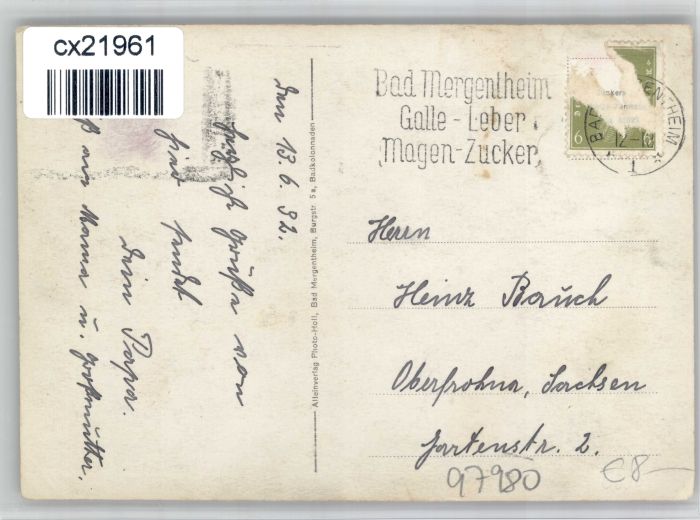 cx21961
Bad Mergentheim
Galle - Leber
Magen-Zucker
6
BAD MERGENTHEIM
12-
1
den 13.6.32.
Herzlich Grüße von
hier sendet
dein Papa.
Gruß an Mama u. Großmutter.
Alleinverlag Photo-Holl, Bad Mergentheim, Burgstr. 5 a, Badkolonnaden
Herrn
Heinz Bauch
Oberfrohna, Sachsen
Gartenstr. 2.
97980
€8-